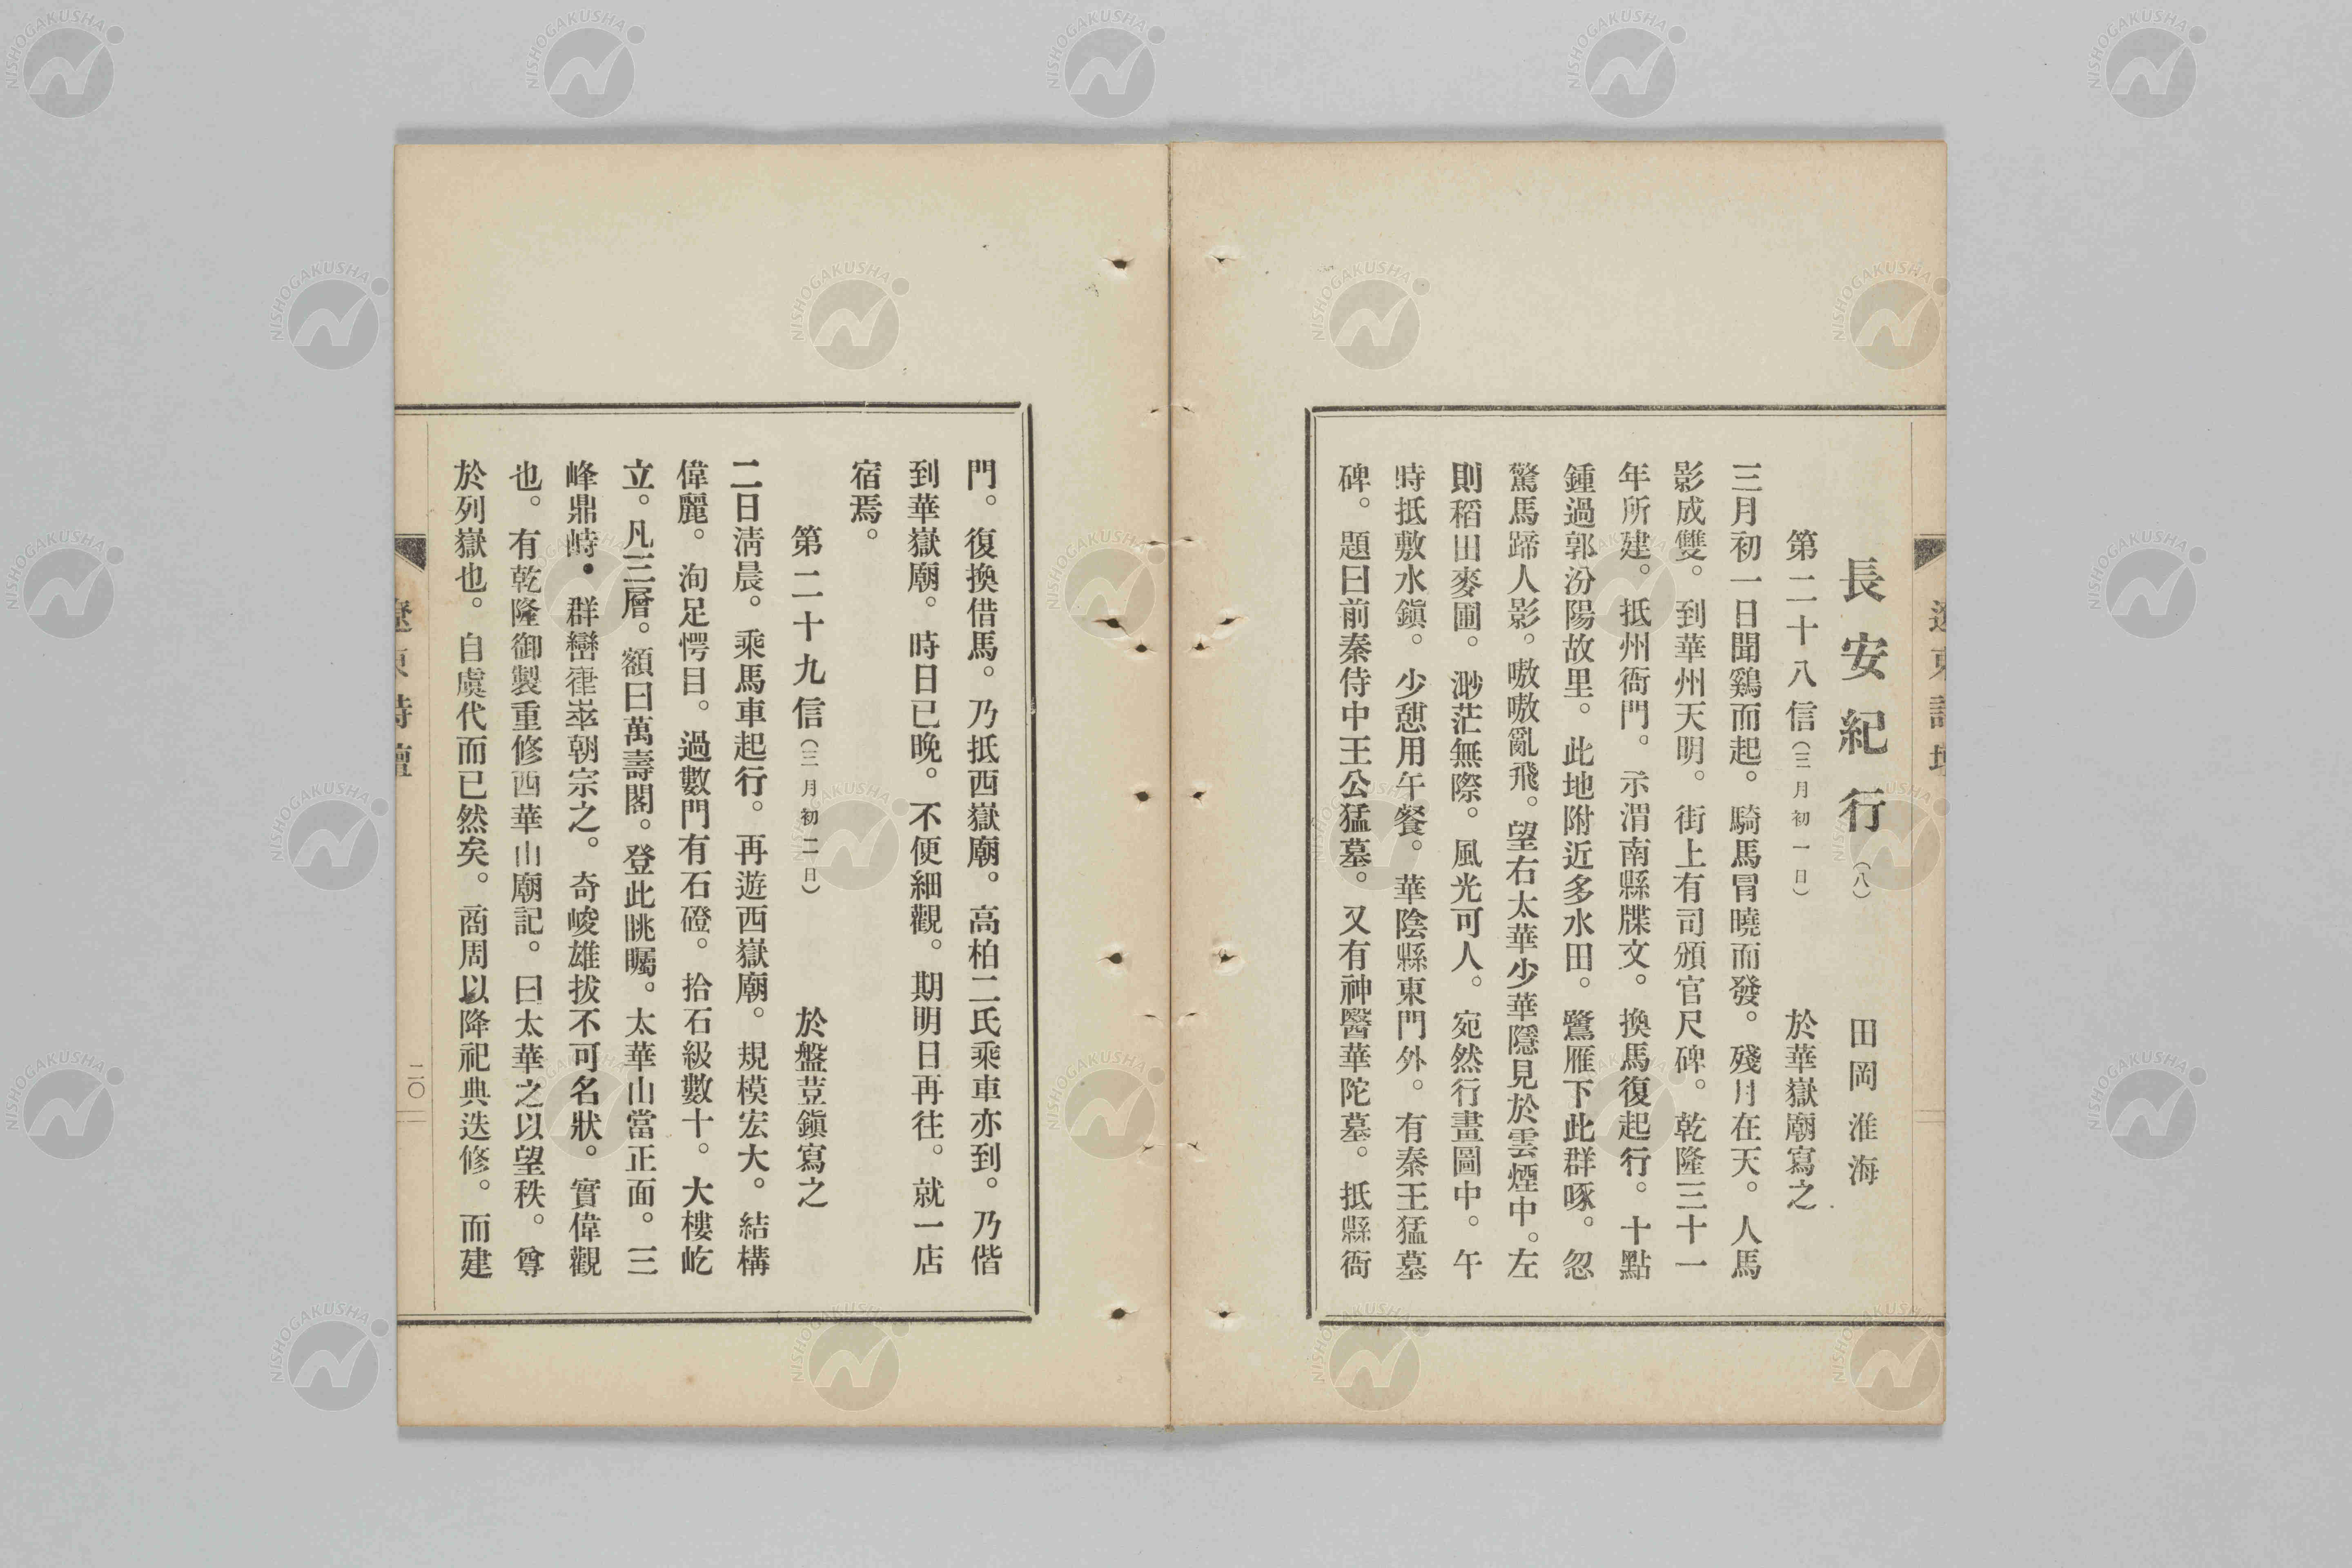 長安紀行（八）　田岡淮海
第二十八信（三月初一日）　於華嶽廟寫之
三月初一日聞鷄而起。騎馬冒曉而發。殘月在天。人馬
影成雙。到華州天明。街上有司頒官尺碑。乾隆三十一
年所建。抵州衙門。示渭南縣牒文。換馬復起行。十點
鍾過郭汾陽故里。此地附近多水田。鷺雁下此群啄。忽
驚馬蹄人影。嗷嗷亂飛。望右太華少華隱見於雲煙中。左
則稻田麥圃。渺茫無際。風光可人。宛然行畫圖中。午
時抵敷水鎭。少憩用午餐。華陰縣東門外。有秦王猛墓
碑。題曰前秦侍中王公猛墓。又有神醫華陀墓。抵縣衙
門。復換借馬。乃抵西嶽廟。高柏二氏乘車亦到。乃偕
到華嶽廟。時日已晚。不便細觀。期明日再往。就一店
宿焉。
第二十九信（三月初二日）　於盤荳鎭寫之
二日淸晨。乘馬車起行。再遊西嶽廟。規模宏大。結構
偉麗。洵足愕目。過數門有石磴。拾石級數十。大樓屹
立。凡三層。額曰萬壽閣。登此眺矚。太華山當正面。三
峰鼎峙•群巒嵂崒朝宗之。奇峻雄拔不可名狀。實偉觀
也。有乾隆御製重修西華山廟記。曰太華之以望秩。尊
於列嶽也。自虞代而已然矣。商周以降祀典迭修。而建
二〇
NISHOGAKUSHA